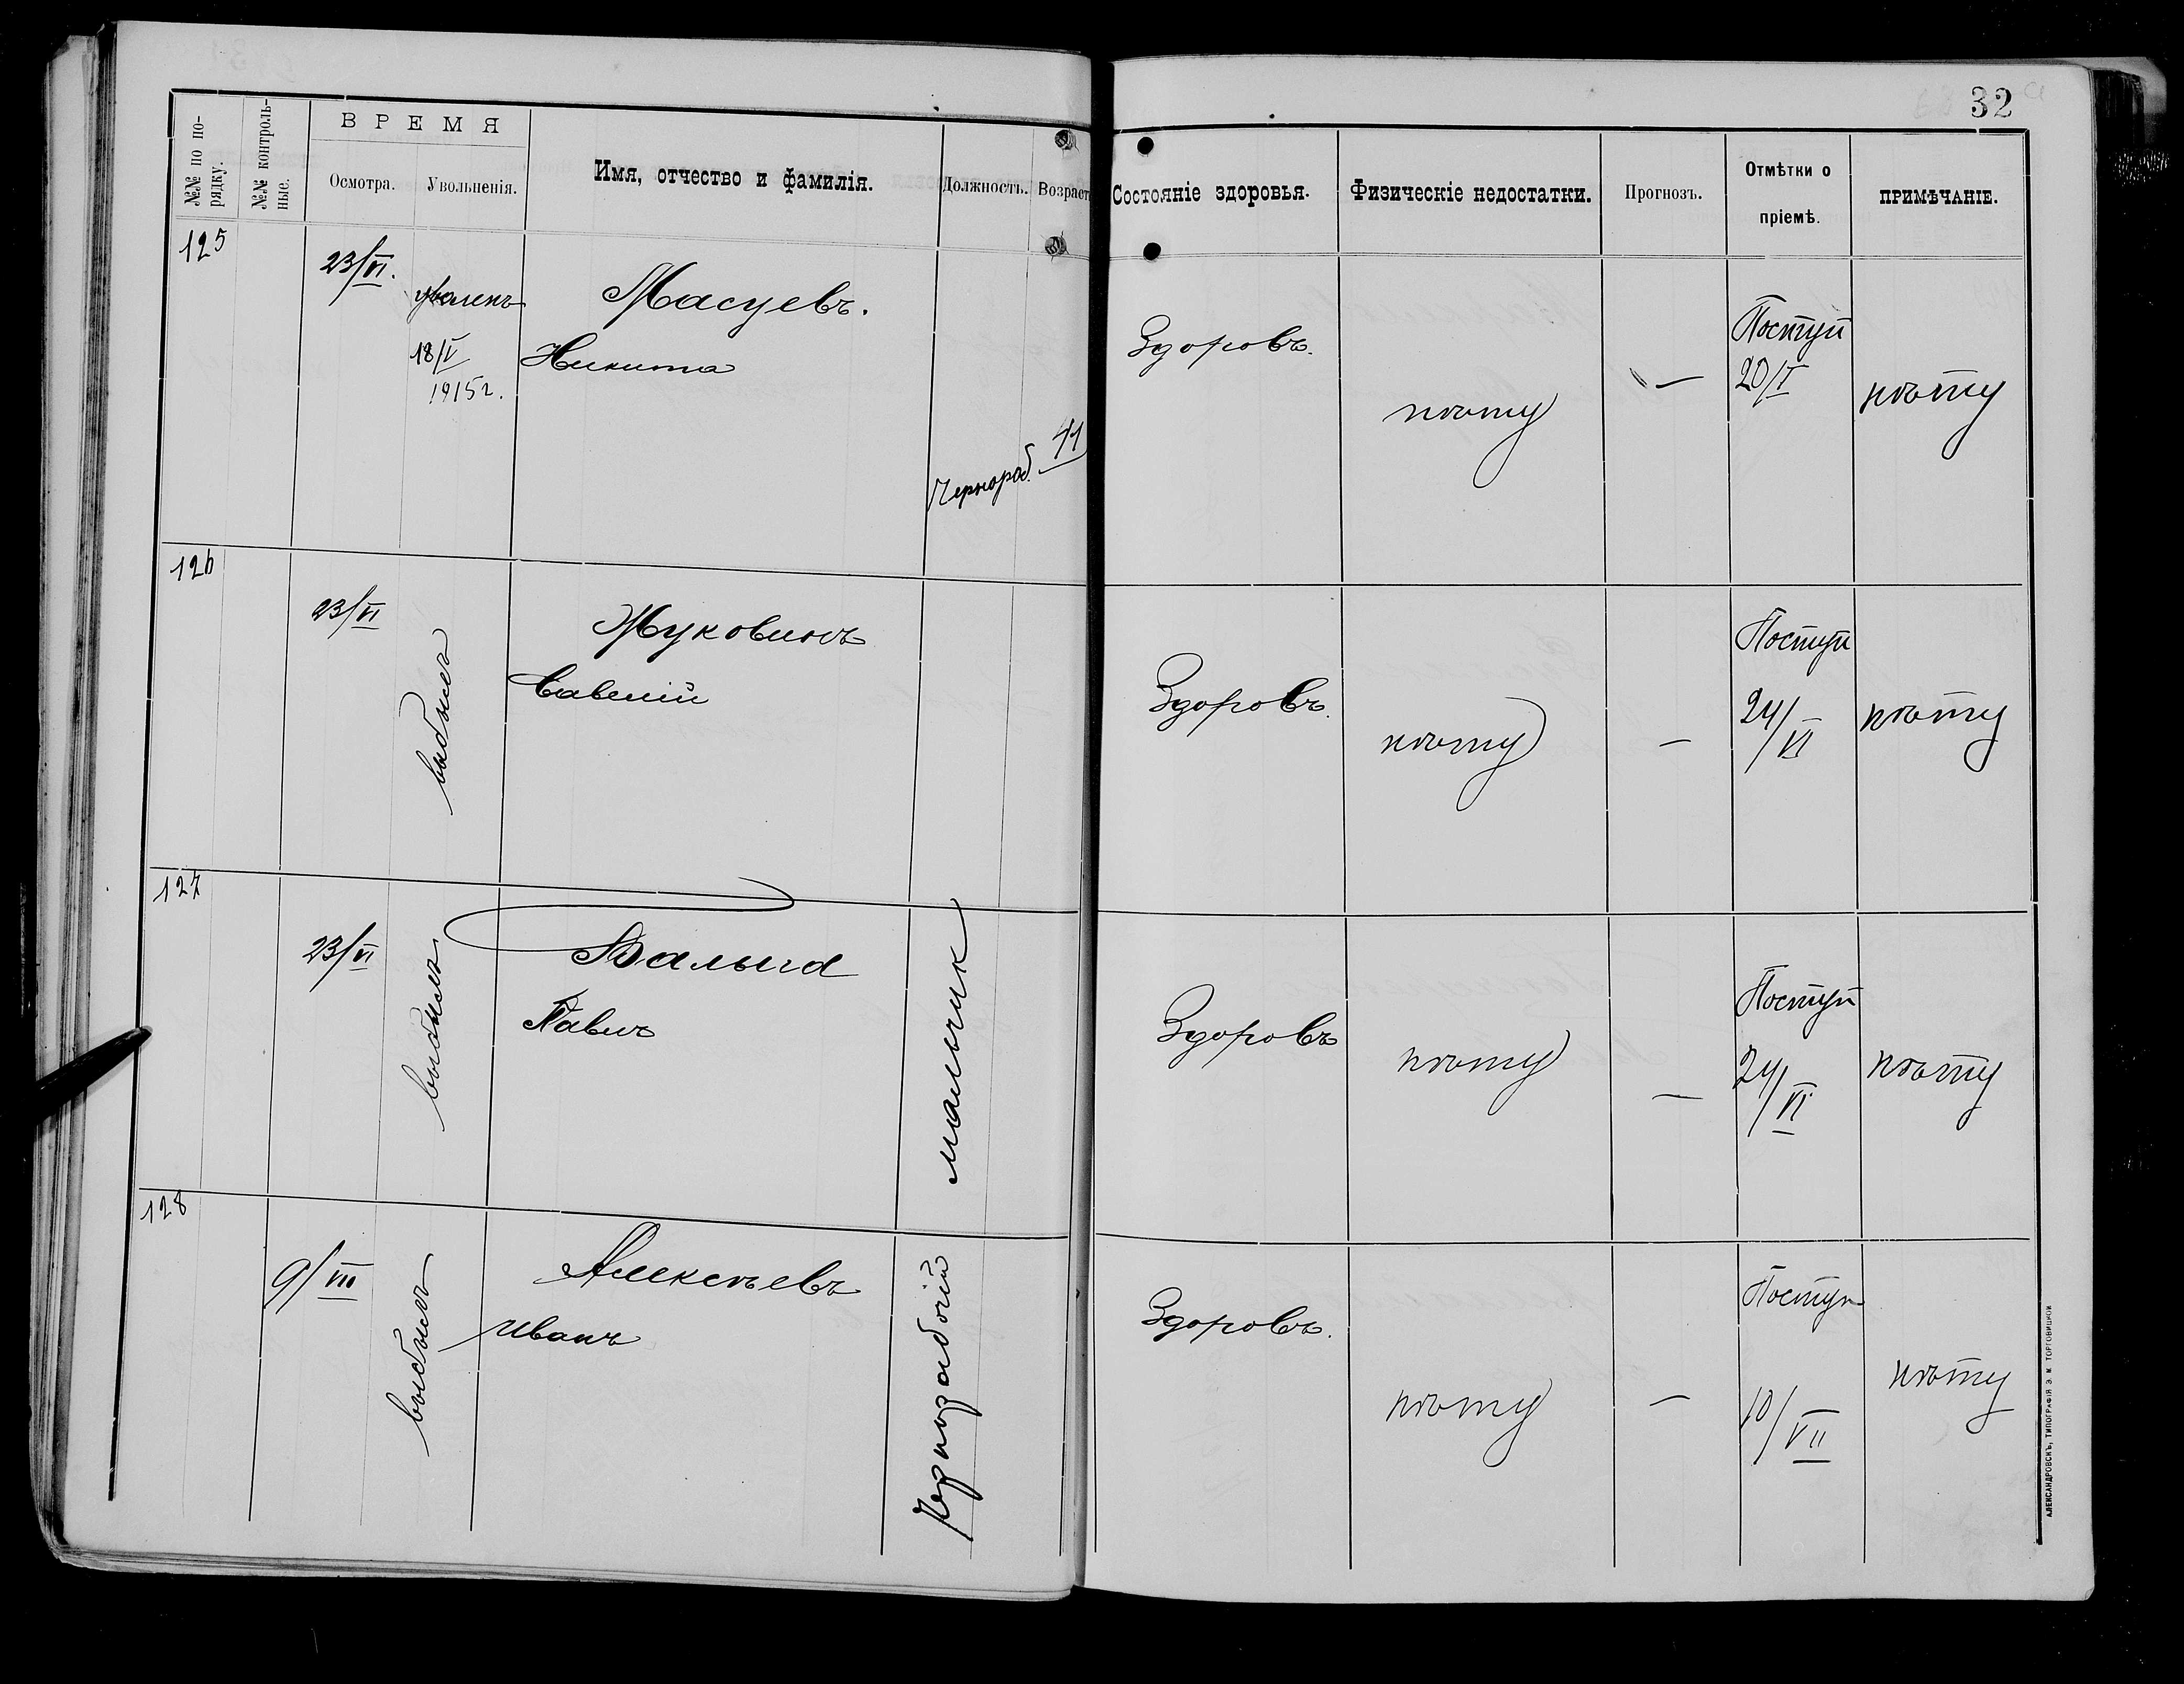 32
№№ по по-
рядку.
№№ контроль-
ные.
ВРЕМЯ
Осмотра.
Увольненія.
Имя, отчество и фамилія.
Должность.
Возраст
Состояніе здоровья.
Физическіе недостатки.
Прогнозъ.
Отмѣтки о
пріемѣ.
ПРИМѢЧАНІЕ.
125
23/VI.
уволенъ
18/V
1915г.
Масуевъ.
Никита
Чернораб.
41
Здоровъ.
нѣту
—
Поступ
20/I
нѣту
126
23/VI
выбылъ
Жуковинъ
Савелій
Здоровъ.
нѣту
—
Поступ
24/VI
нѣту
127
23/VI
выбылъ
Балыга
Павелъ
мальчик
Здоровъ
нѣту
—
Поступ
24/VI
нѣту
128
9/VII
выбылъ
Алексѣевъ
Иванъ
Чернорабочій
Здоровъ.
нѣту
—
Поступ
10/VII
нѣту
АЛЕКСАНДРОВСКЪ, ТИПОГРАФІЯ Э. И. ТОРГОВИЦКОЙ